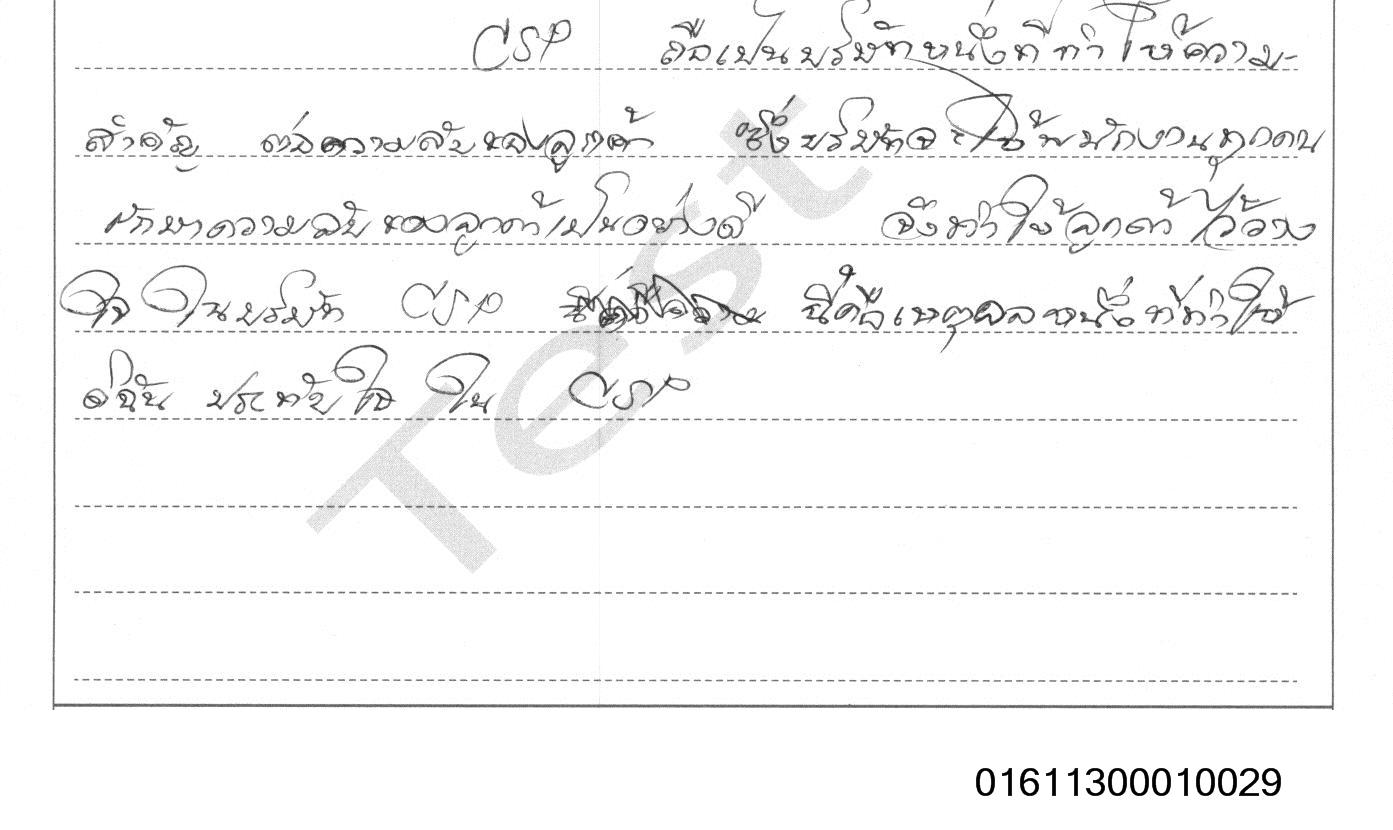 CSP ถือเป็นบริษัทหนึ่งที่ทำให้ความ-
สำคัญ ต่อความลับของลูกค้า ซึ่งบริษัทจะให้พนักงานทุกคน
รักษาความลับของลูกค้าเป็นอย่างดี จึงทำให้ลูกค้าไว้วาง
ใจในบริษัท CSP นี่คือเหตุผลหนึ่งที่ทำให้
ดิฉัน ประทับใจ ใน CSP
Test
01611300010029